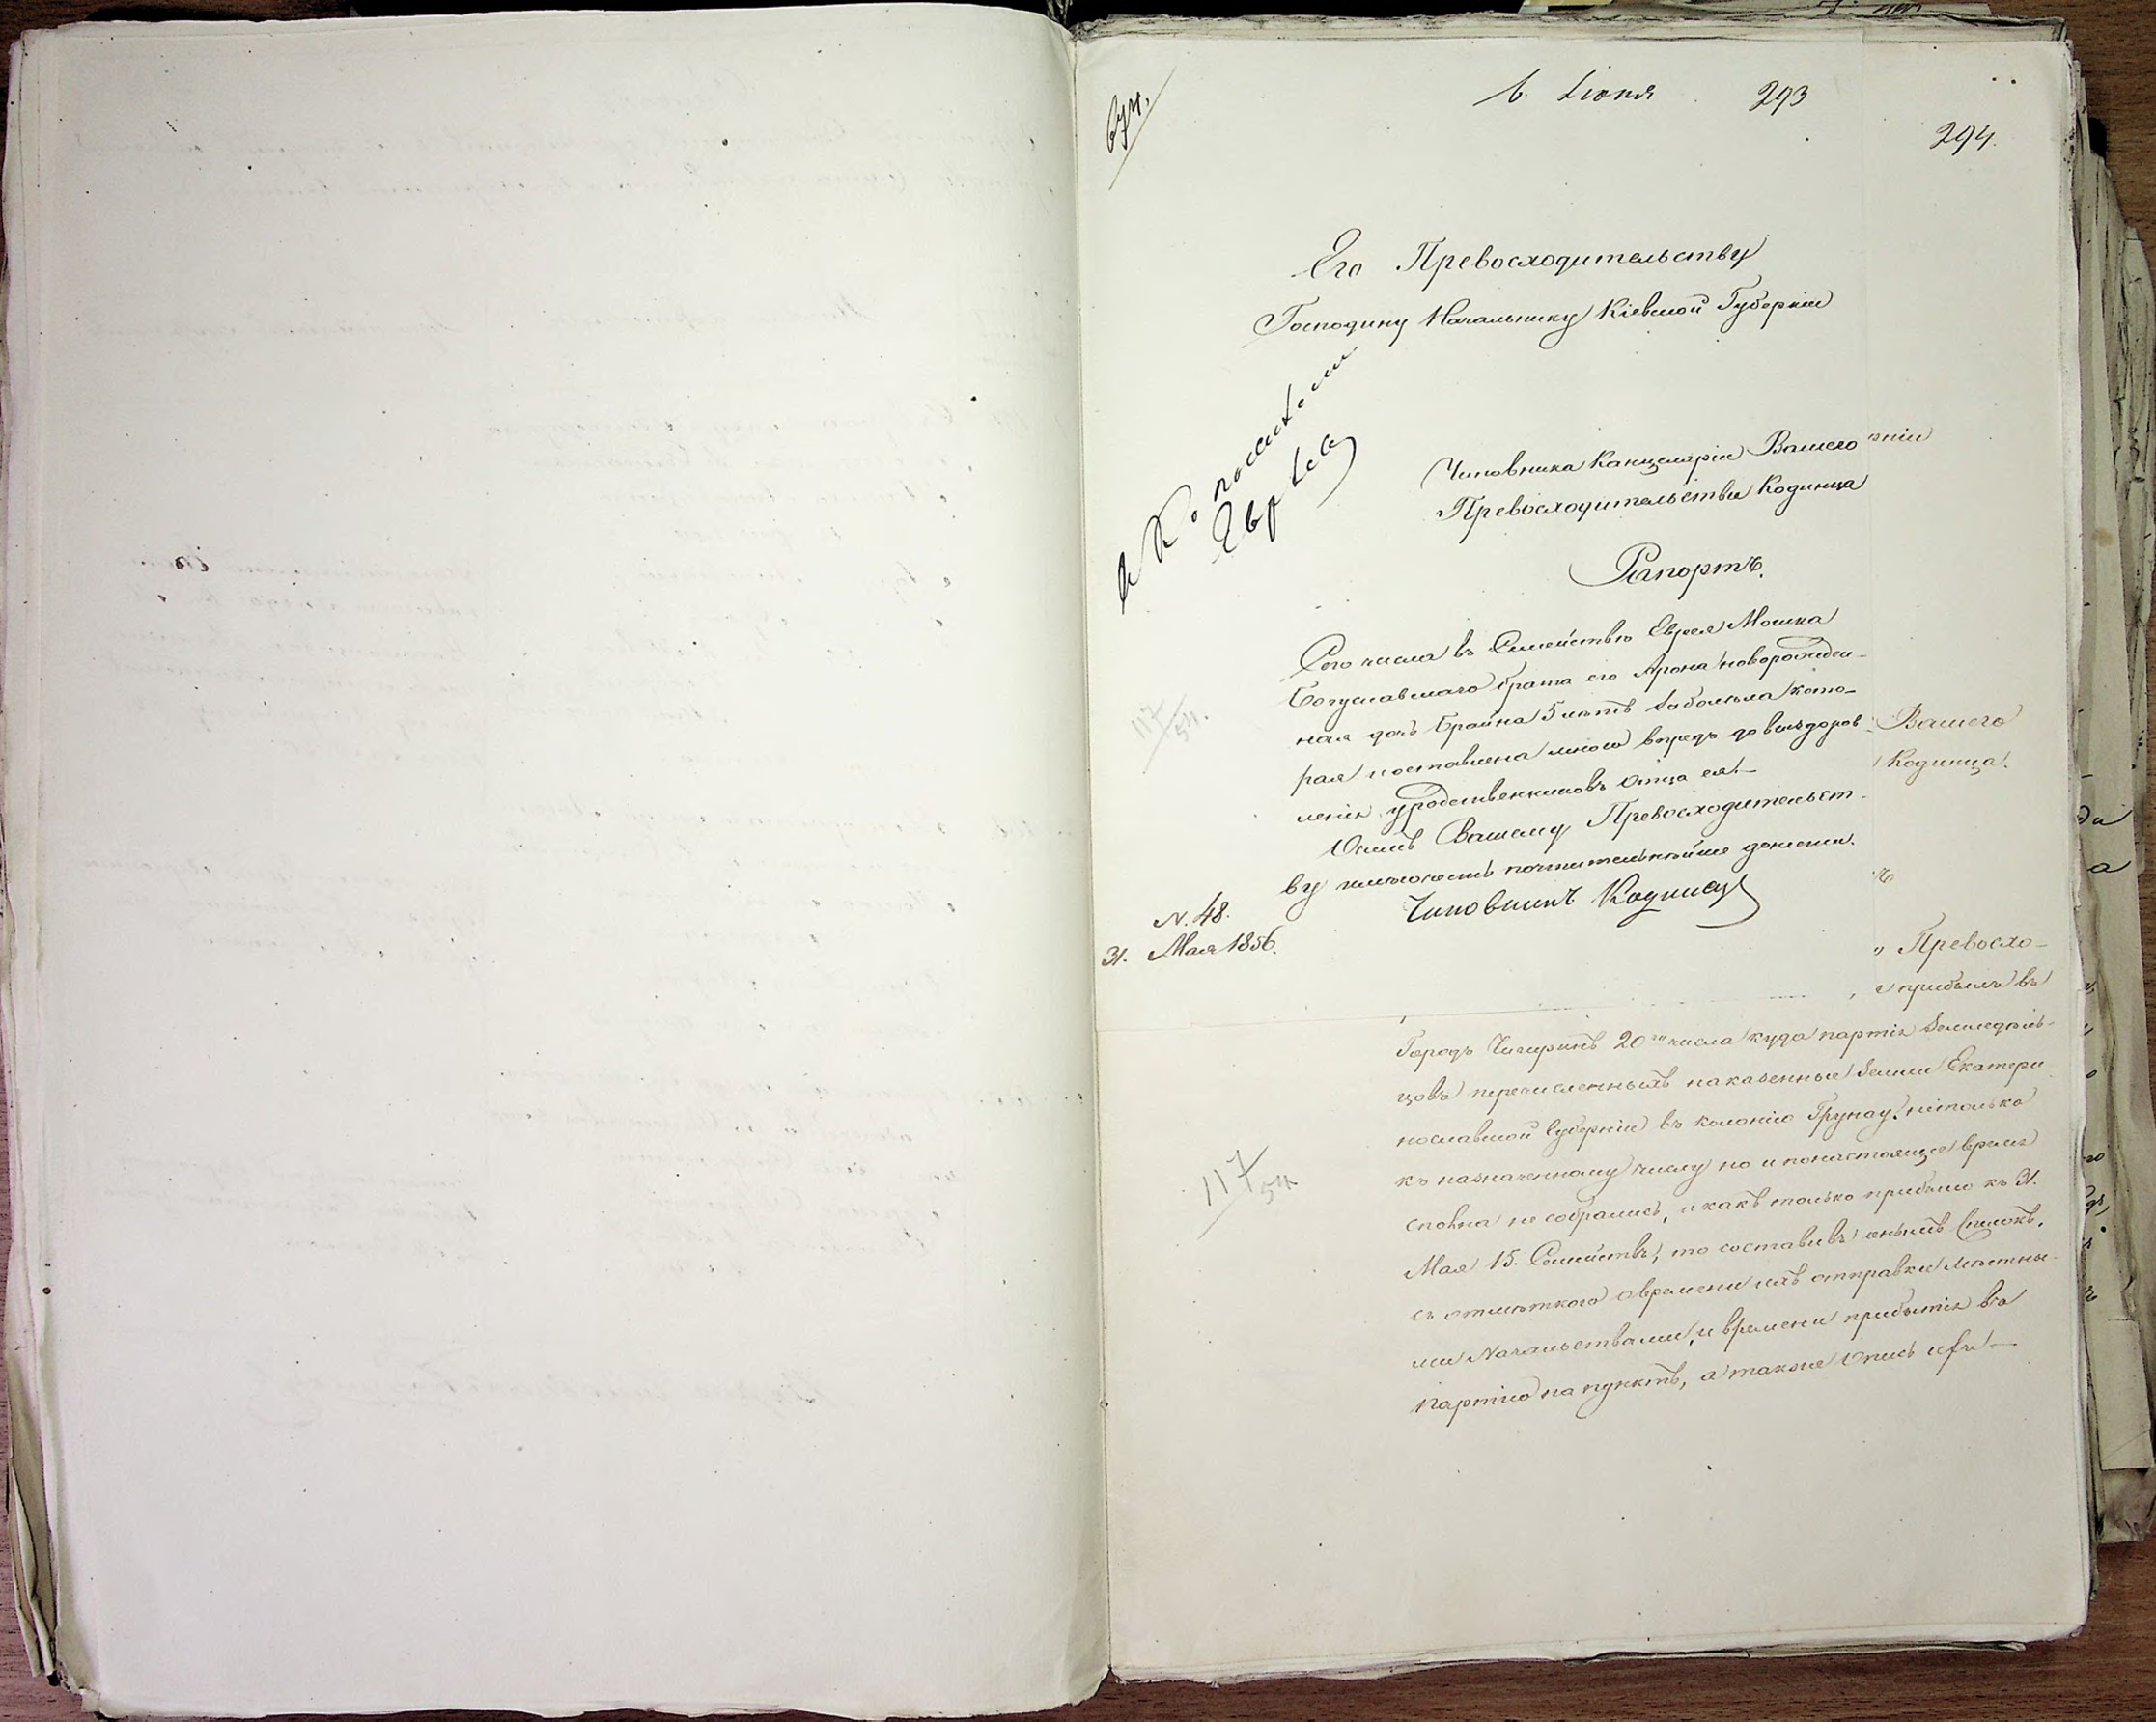 674.
6 Іюня 293
294.
Его Превосходительству
Господину Начальнику Кіевской Губерніи
о поселеніи
Евреевъ
Чиновника Канцеляріи Вашего
Превосходительства Кодинца
Рапортъ.
Сего числа въ Семействѣ Еврея Мошка
Богуславскаго брата его Арона новорожден-
ная дочь Брайна 5 лѣтъ заболѣла кото-
рая и оставлена мною впредь до выздоров-
ленія у родственниковъ отца ея.
О чемъ Вашему Превосходительст-
ву имѣю честь почтительнѣйше донести.
Чиновникъ Кодинец
N. 48.
31. Мая 1856.
117/54.
ніи
Вашего
Кодинца.
ъ
" Превосхо-
прибылъ въ
Городъ Чигиринъ 20го числа куда партія Земледѣль-
цовъ перечисленныхъ на казенные земли Екатери
нославской Губерніи въ колонію Грунау нетолько
къ назначенному числу но и по настоящее время
сполна не собрались, и какъ только прибыло къ 31.
Мая 15. Семействъ, то составивъ онымъ Списокъ,
съ отмѣткою о времени ихъ отправки мѣстны-
ми Начальствами, и времени прибытія въ
партію на пунктъ, а также Опись
117/54